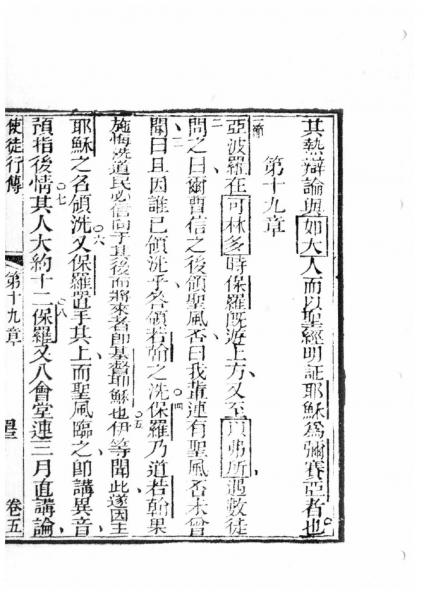 其熱辯論與如大人而以聖經明証耶穌爲彌賽亞者也。
第十九章
一節
亞波羅在可林多時保羅既遊上方、又至以弗所、遇數徒、
二
問之曰爾曹信之後領聖風否曰我輩連有聖風否未曾
三
聞曰且因誰已領洗乎答領若翰之洗。四保羅乃道若翰果
施悔洗道民必信向于其後而將來者即基督耶穌也。五伊等聞此遂因主
耶穌之名領洗。六又保羅置手其上而聖風臨之、即講異音、
預指後情。七其人大約十二。八保羅又入會堂連三月直講論、
使徒行傳
第十九章
卷五